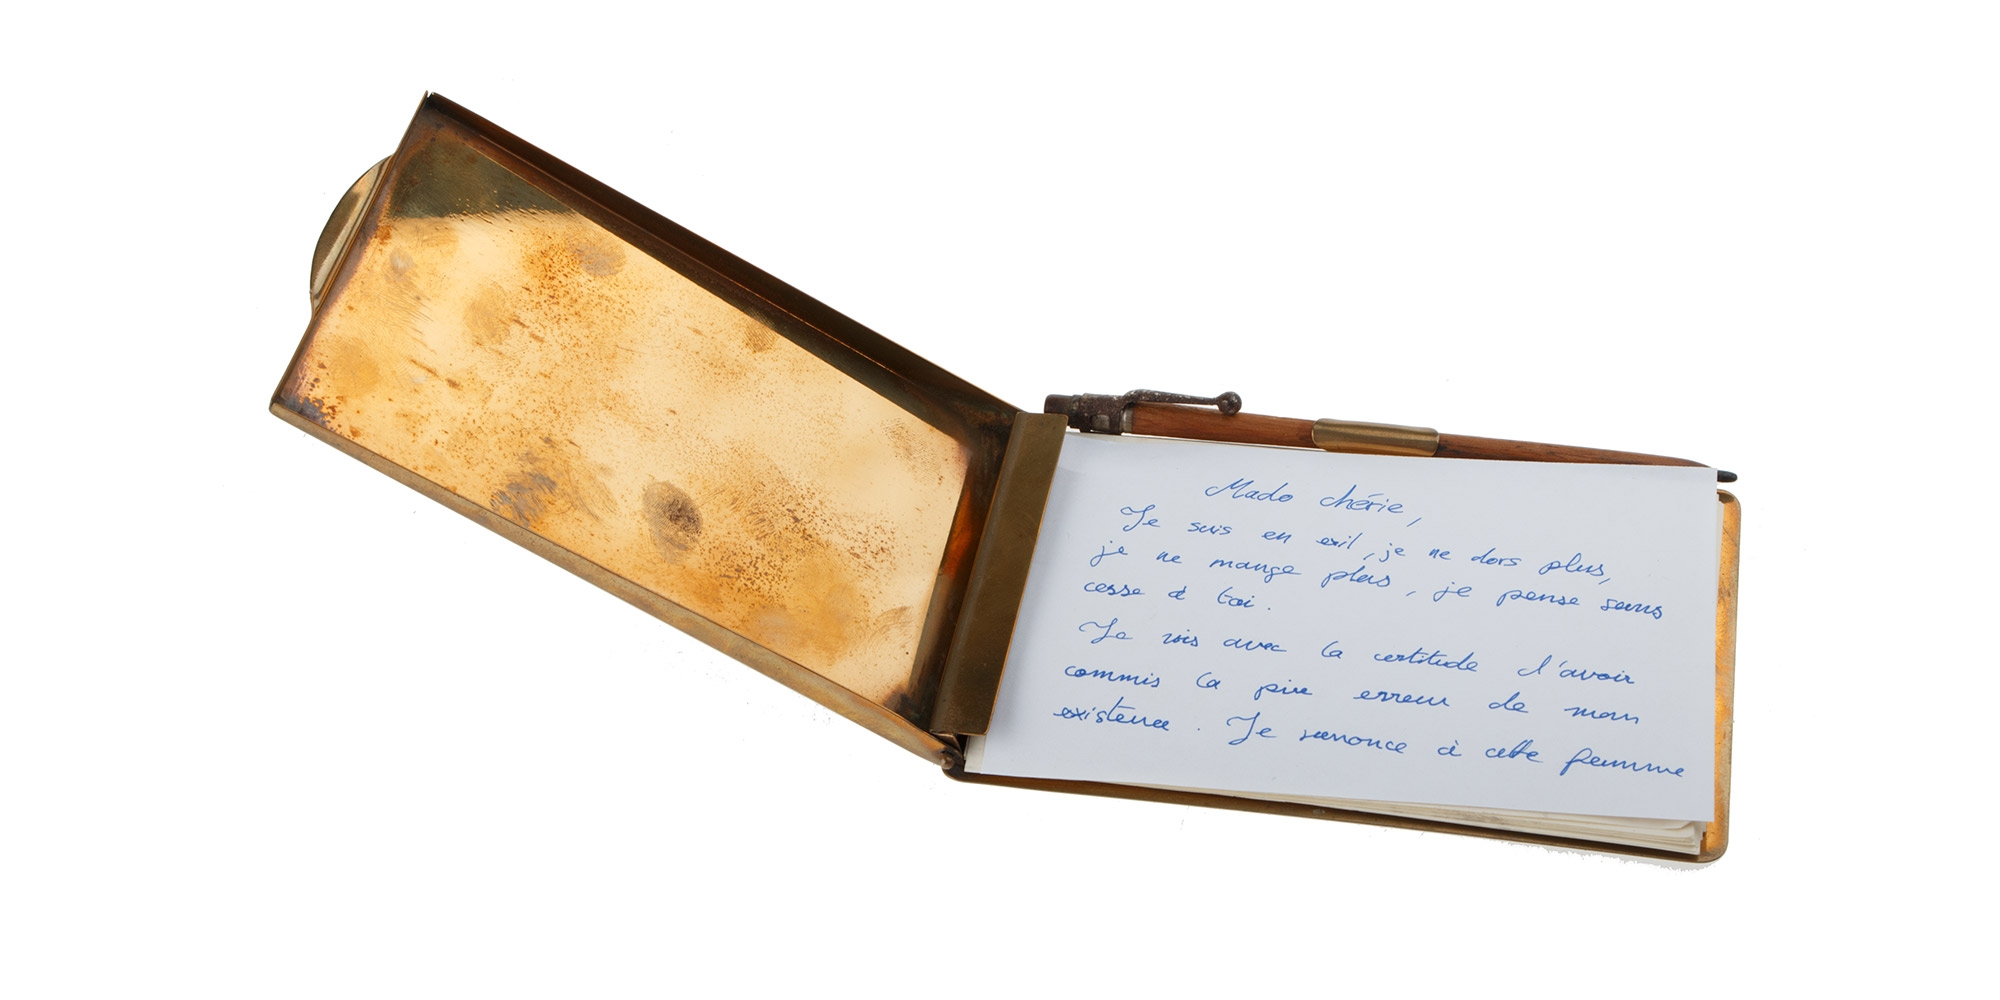 Mado chérie,
Je suis en exil, je ne dors plus,
je ne mange plus, je pense sans
cesse à toi.
Je vis avec la certitude d'avoir
commis la pire erreur de mon
existence. Je renonce à cette femme